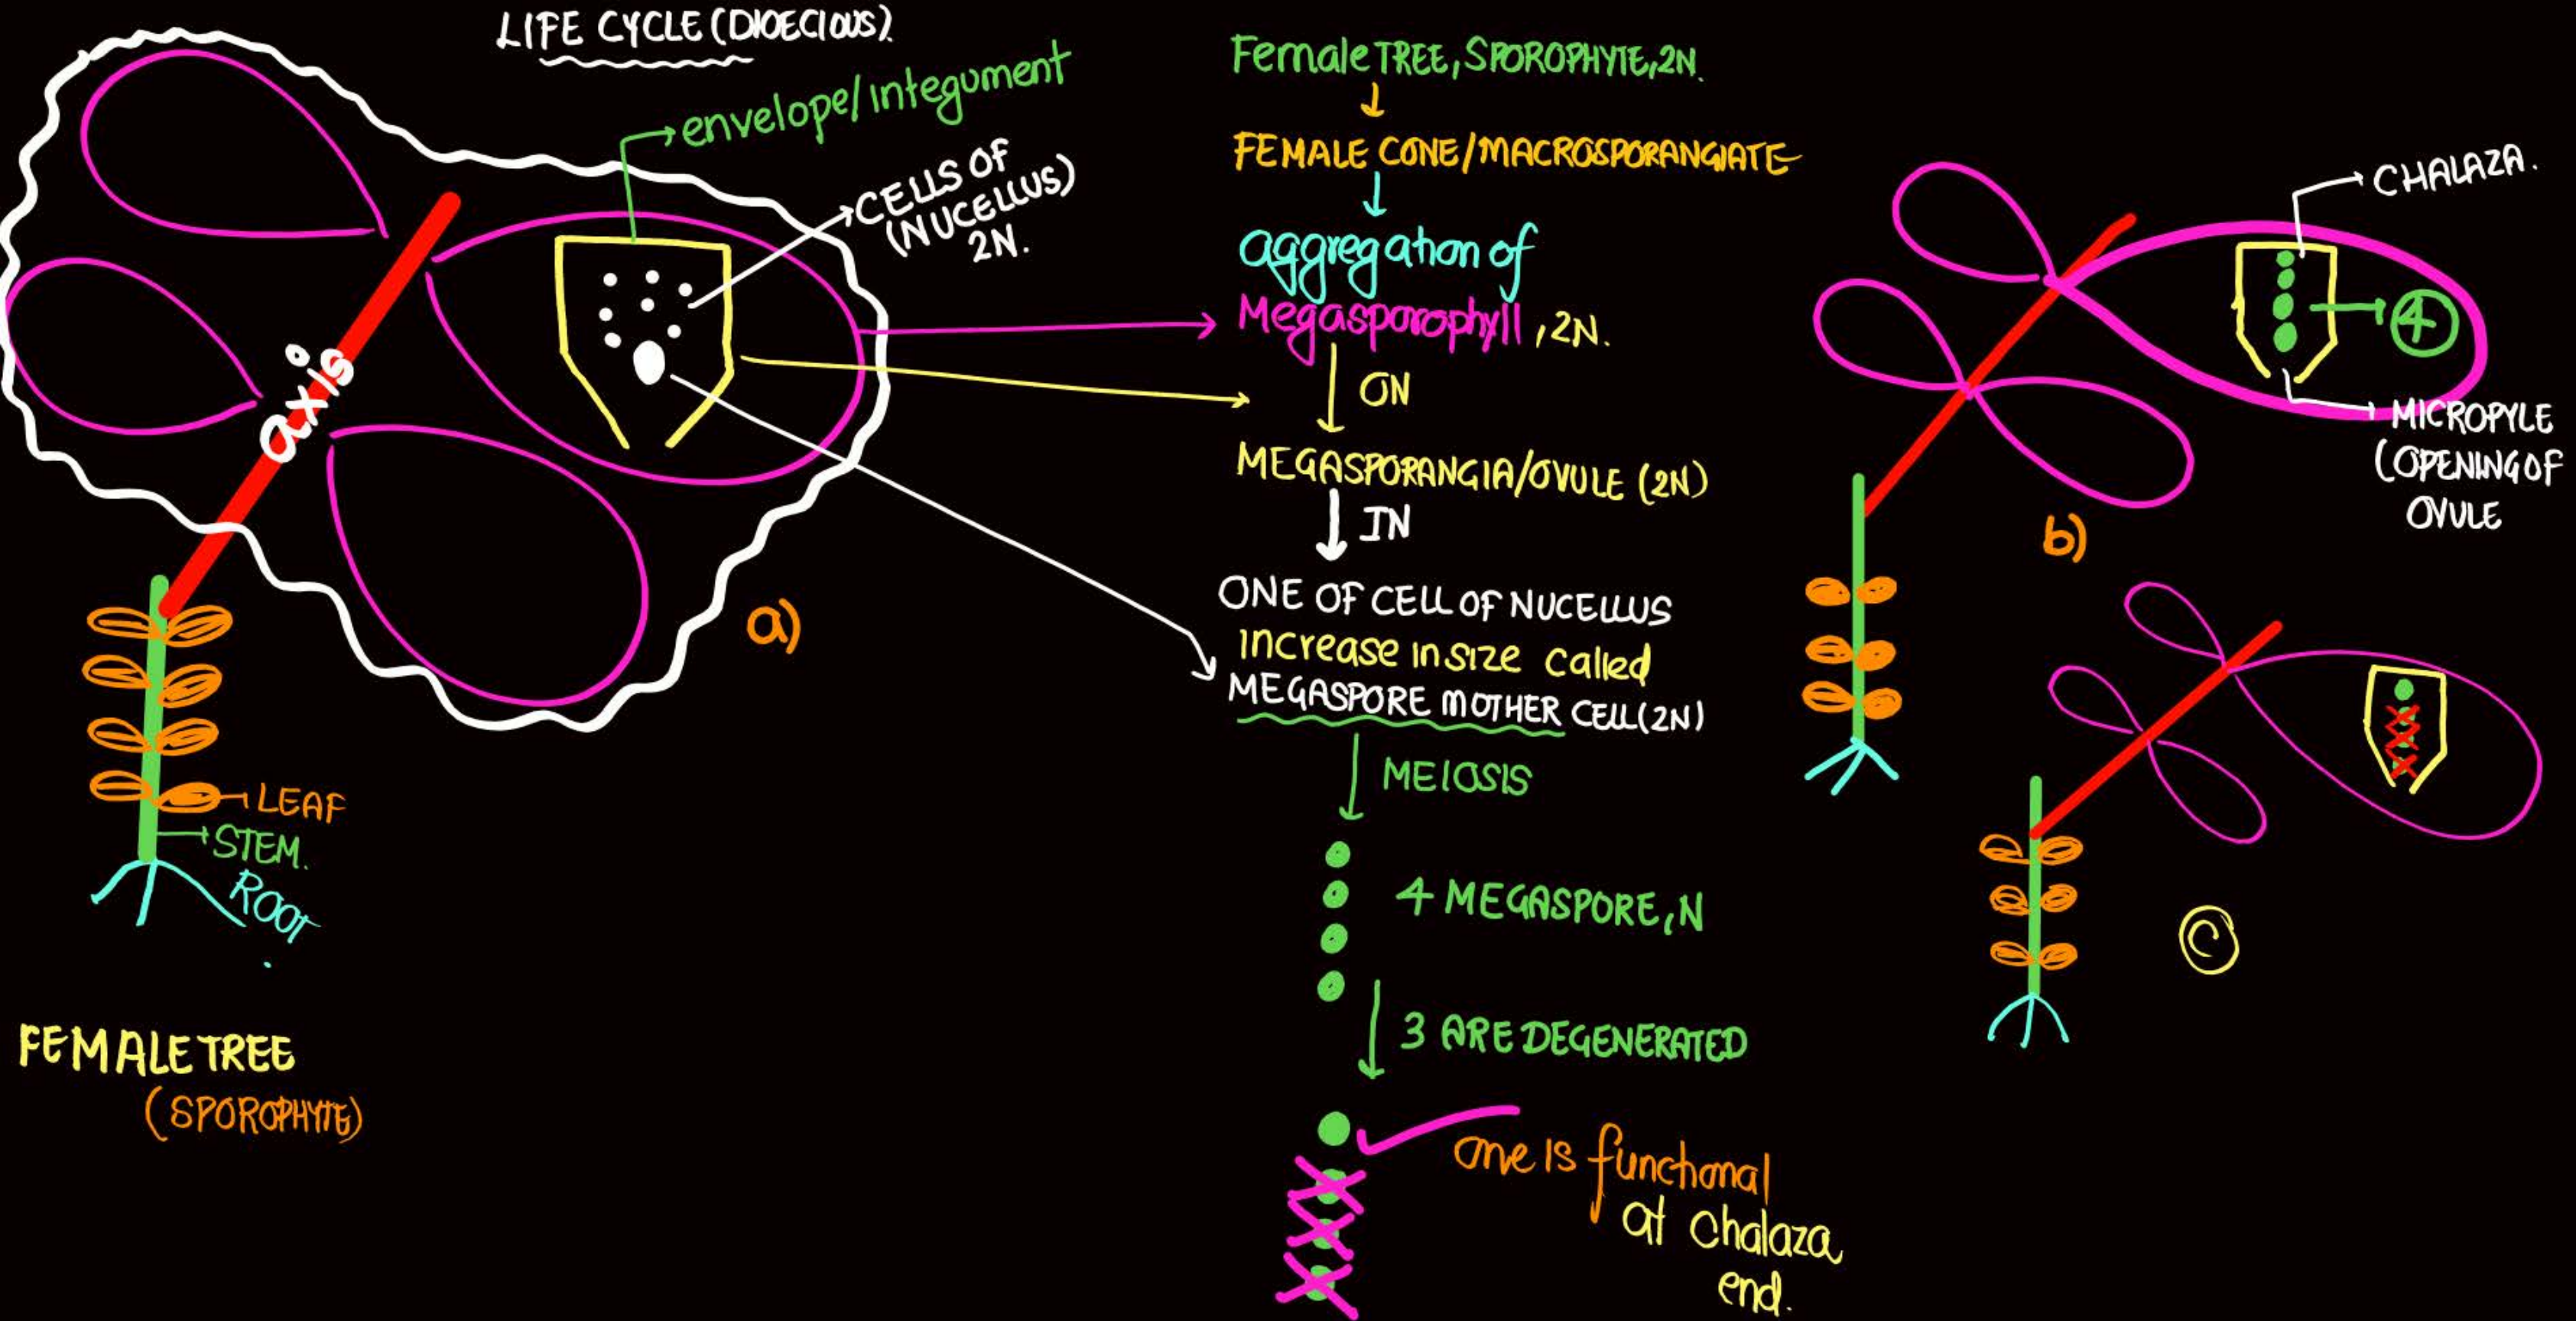 LIFE CYCLE (DIOECIOUS).
envelope/integument
CELLS OF
(NUCELLUS)
2N.
axis
a)
LEAF
STEM.
ROOT
FEMALE TREE
(SPOROPHYTE)
Female TREE, SPOROPHYTE, 2N.
FEMALE CONE/MACROSPORANGIATE
aggregation of
Megasporophyll, 2N.
ON
MEGASPORANGIA/OVULE (2N)
IN
ONE OF CELL OF NUCELLUS
increase in size called
MEGASPORE MOTHER CELL (2N)
MEIOSIS
4 MEGASPORE, N
3 ARE DEGENERATED
one is functional
at chalaza
end.
CHALAZA.
4
MICROPYLE
(OPENING OF
OVULE
b)
C